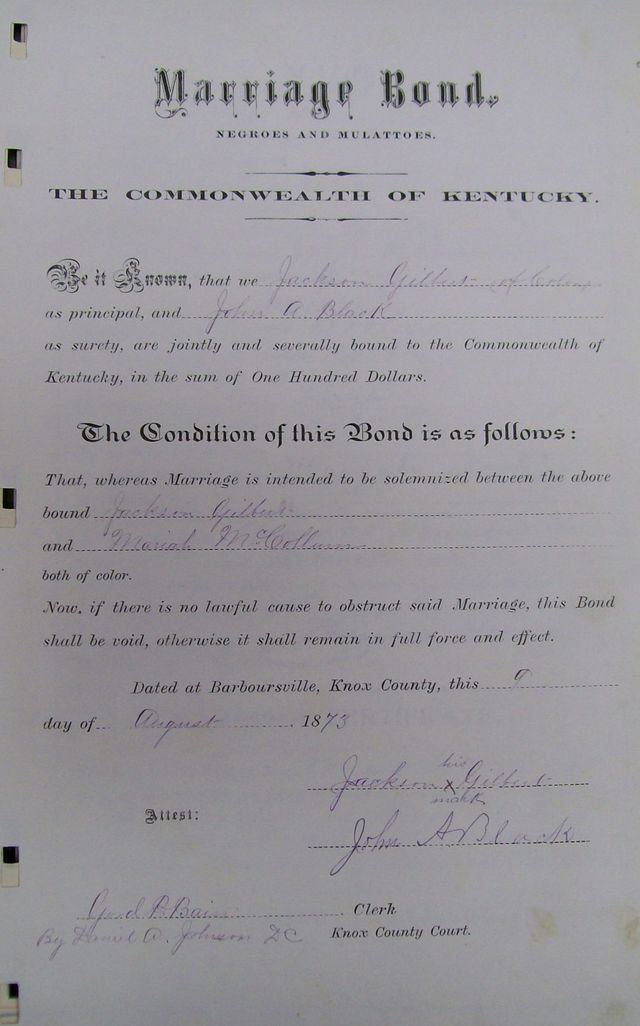 Marriage Bond,
NEGROES AND MULATTOES.
THE COMMONWEALTH OF KENTUCKY.
Be it Known, that we Jackson Gilbert of Color
as principal, and John A Black
as surety, are jointly and severally bound to the Commonwealth of
Kentucky, in the sum of One Hundred Dollars.
The Condition of this Bond is as follows:
That, whereas Marriage is intended to be solemnized between the above
bound Jackson Gilbert
and Mariah McCollum
both of color.
Now, if there is no lawful cause to obstruct said Marriage, this Bond
shall be void, otherwise it shall remain in full force and effect.
Dated at Barboursville, Knox County, this 9
day of August 1873
his
Jackson x Gilbert
mark
Attest:
John A Black
Bain Clerk
By Daniel A. Johnson DC Knox County Court.